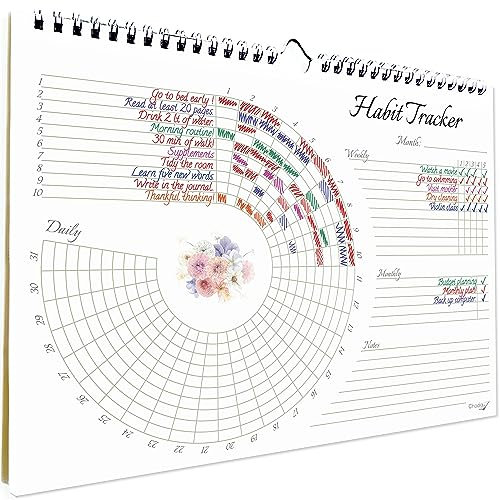 Habit Tracker
Month:
1 Go to bed early!
2 Read at least 20 pages.
3 Drink 2 lt of water.
4 Morning routine!
5 30 min of walk!
6 Supplements
7 Tidy the room
8 Learn five new words
9 Write in the journal
10 Thankful thinking!
Daily
1 2 3 4 5 6 7 8 9 10 11 12 13 14 15 16 17 18 19 20 21 22 23 24 25 26 27 28 29 30 31
Weekly
1 2 3 4 5
Watch a movie
Go to swimming
Visit mother
Dry cleaning
Violin class
Monthly
planning
Monthly plan!
Back up computer
Notes